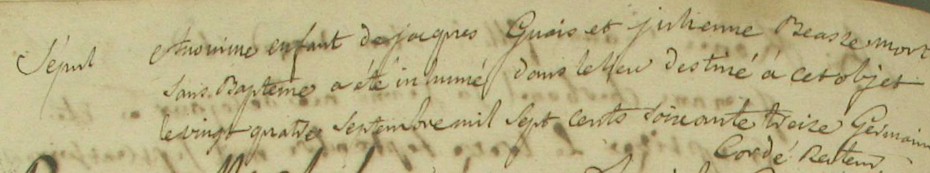 Sépul anonime enfant de jacques Guais et julienne mort
sans Baptême a été inhumé dans le lieu destiné à cet objet
le vingt quatre Septembre mil Sept cents soixante treize Germain
Cordé Recteur